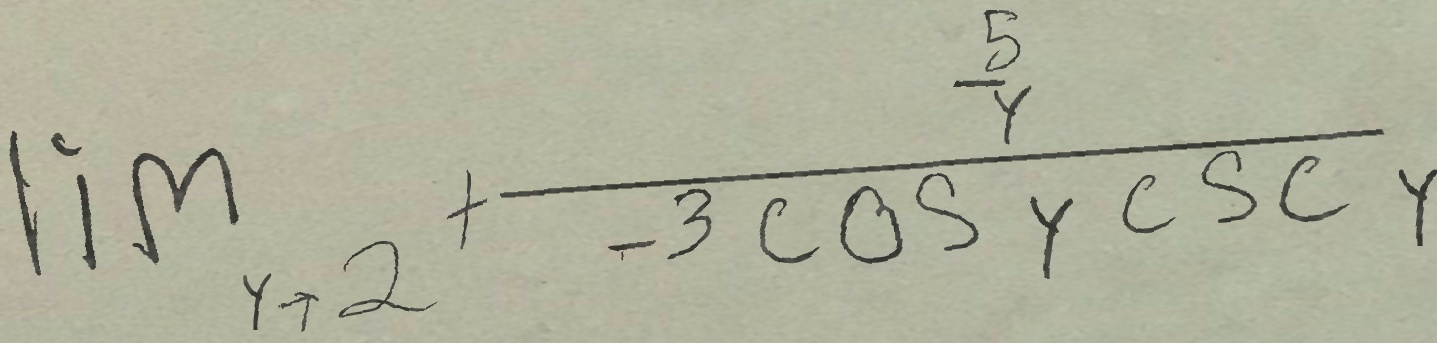 \lim_{y \to 2^+} \frac{\frac{5}{y}}{-3 \cos y \csc y}